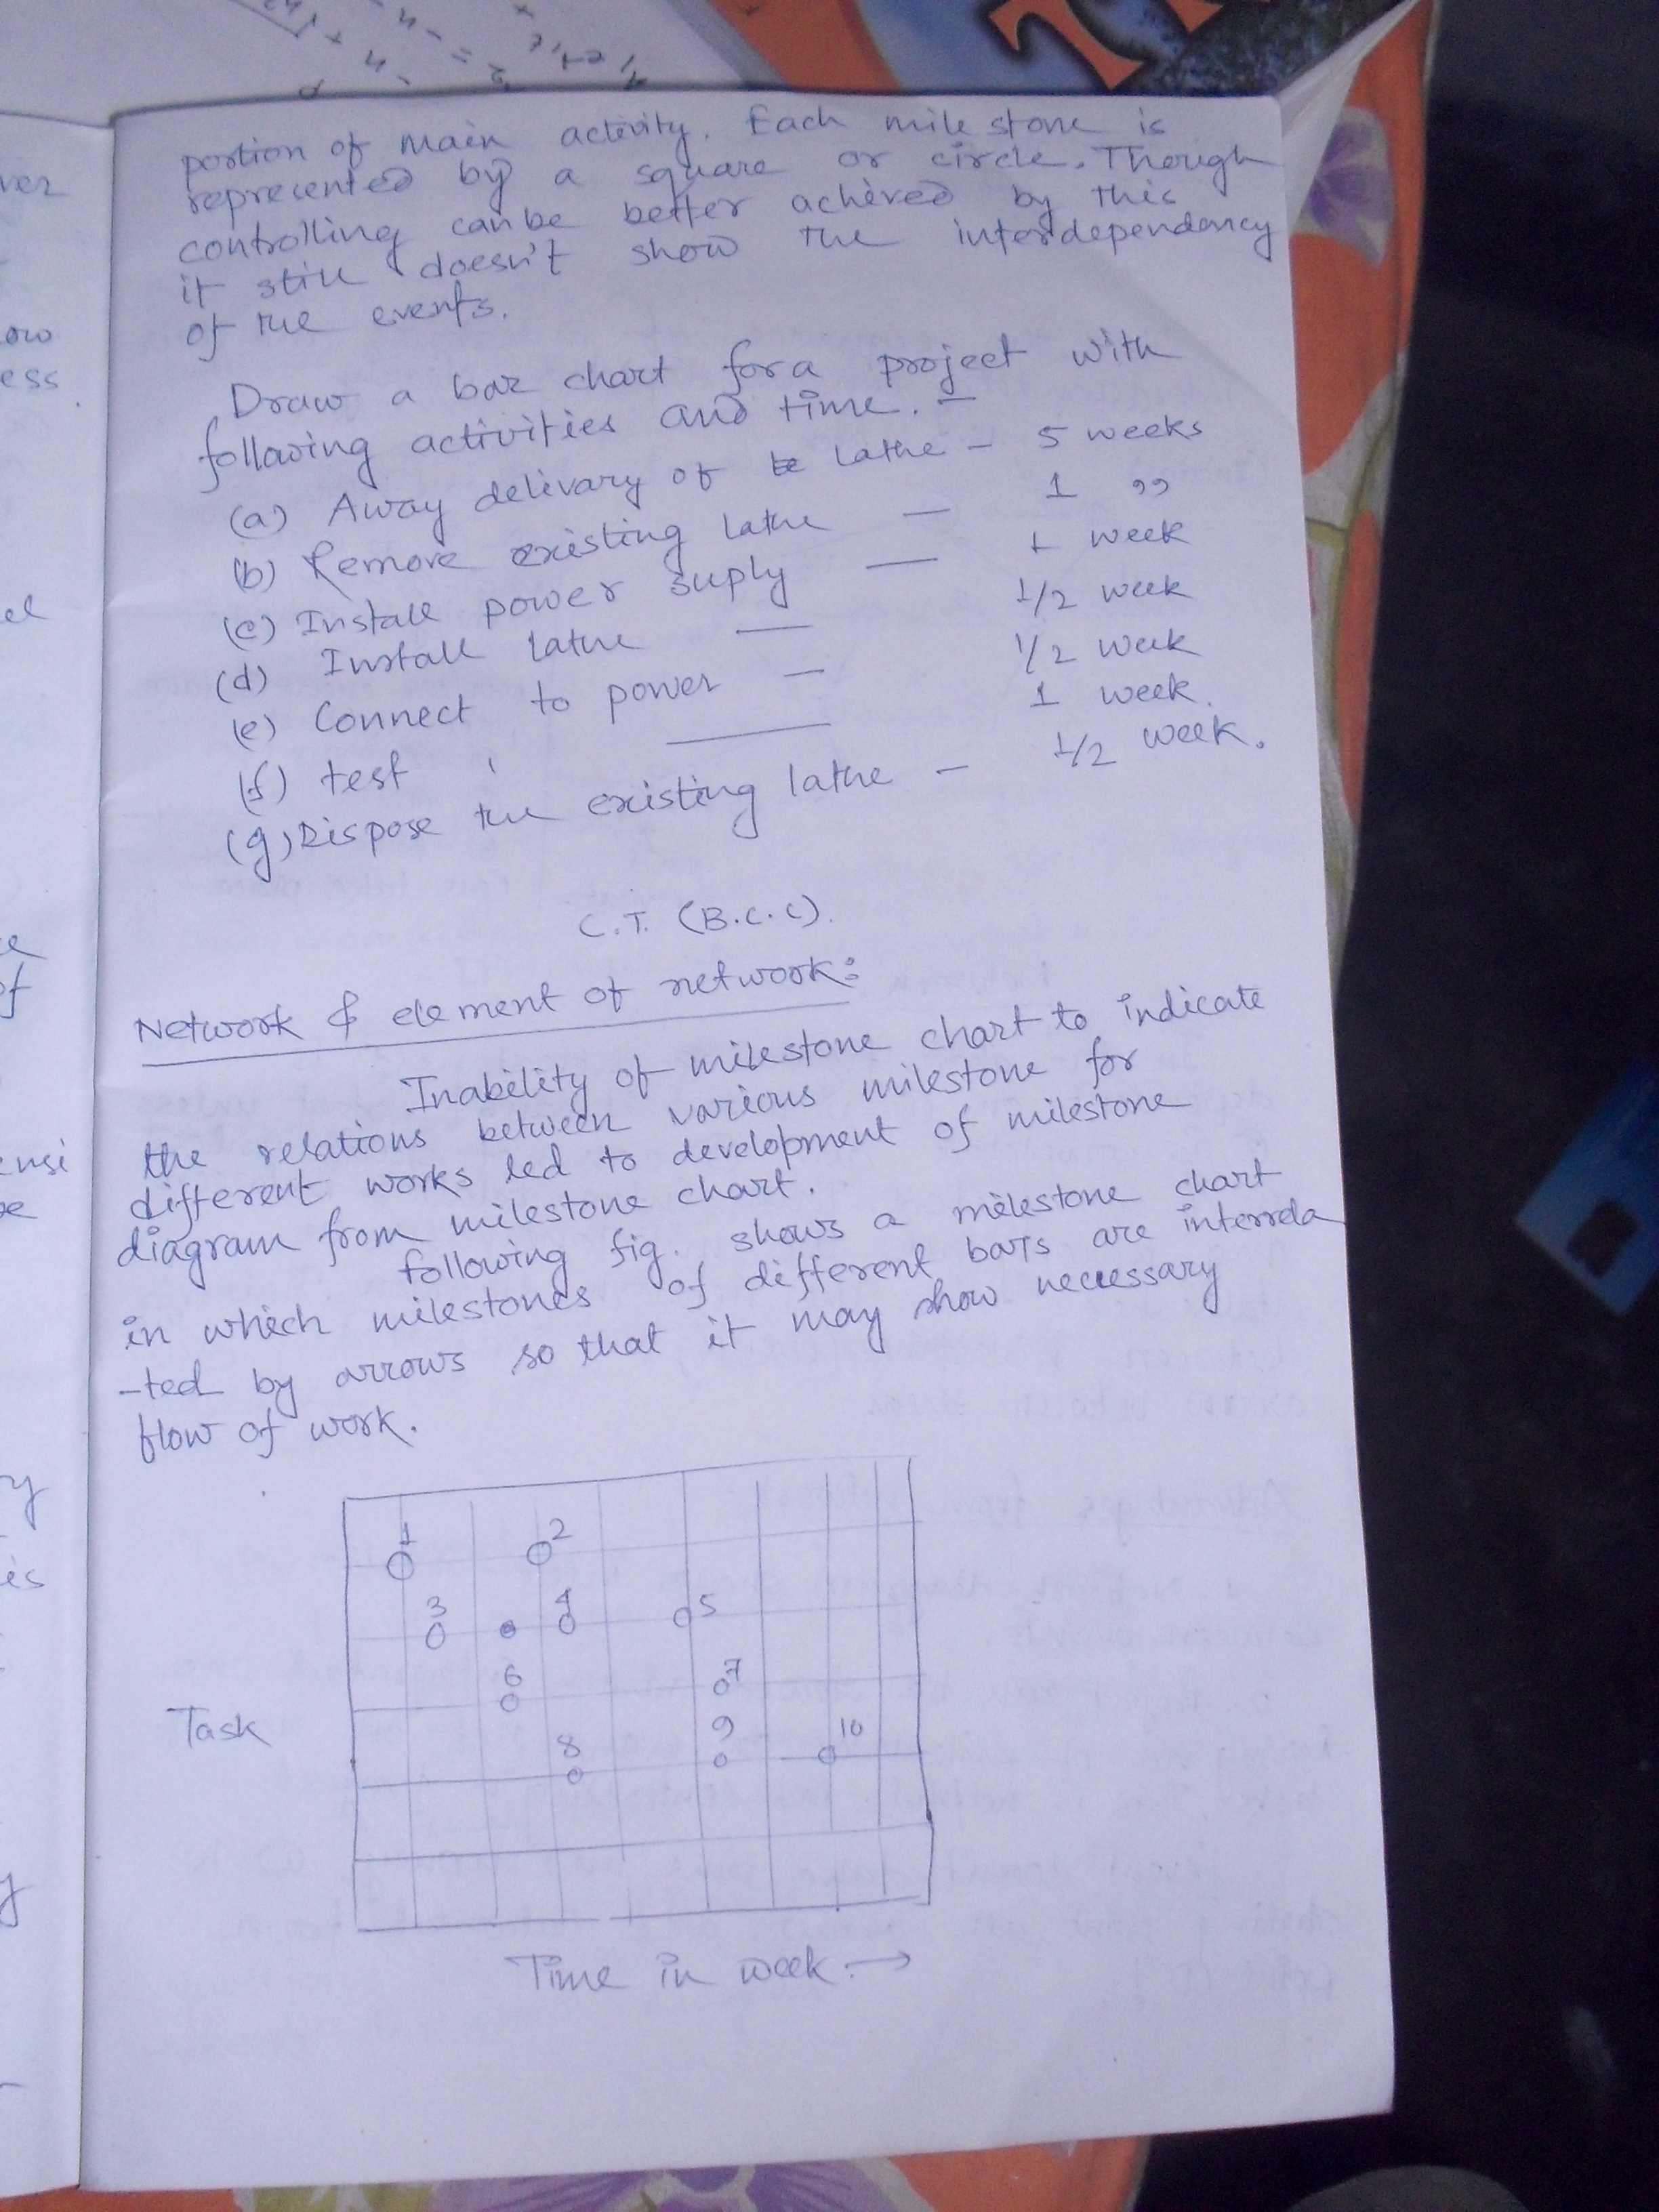 portion of main activity. Each mile stone is
represented by a square or circle. Though
controlling can be better achived by this
it still doesn't show the interdependency
of the events.
Draw a bar chart for a project with
following activities and time. -
(a) Away delivary of lathe - 5 weeks
(b) Remove existing lathe - 1 ,,
(c) Install power suply - 1 week
(d) Install lathe - 1/2 week
(e) Connect to power - 1/2 week
(f) test - 1 week.
(g) Dispose the existing lathe - 1/2 week.
C.T. (B.C.C).
Network & element of network:
Inability of milestone chart to indicate
the relations between various milestone for
different works led to development of milestone
diagram from milestone chart.
following fig. shows a milestone chart
in which milestones of different bars are interrela
-ted by arrows so that it may show necessary
flow of work.
1 2
3 4 5
6 7
Task
8 9 10
Time in week :→
ver
ow
ess
el
e
of
ensi
y
is
y